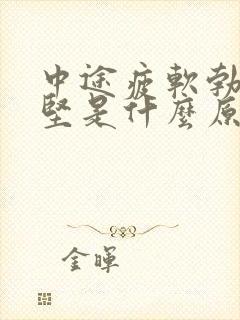 中途疲軟勃
堅是什麼原
金暉